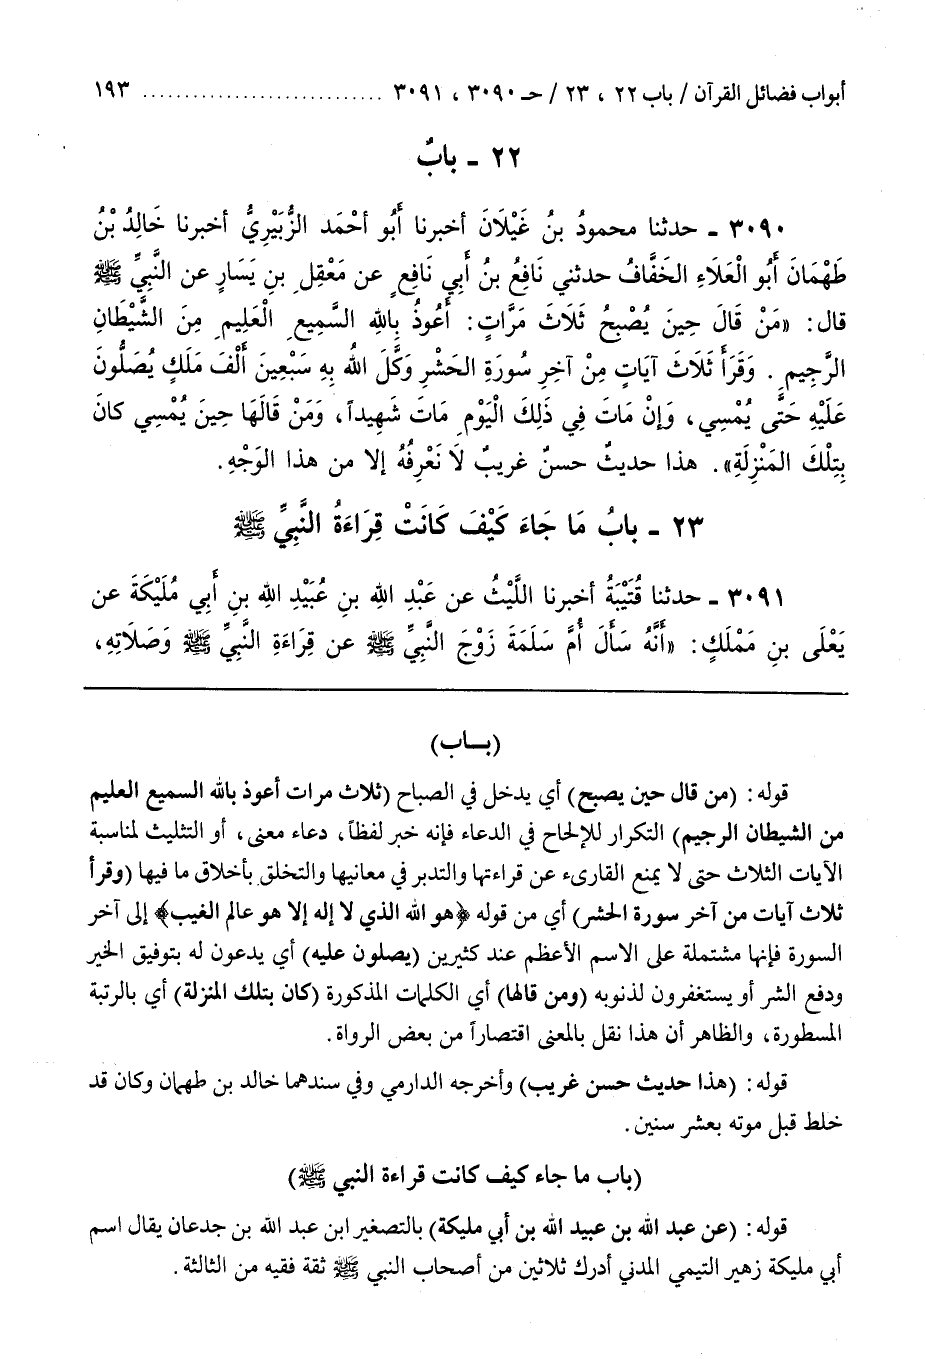 أبواب فضائل القرآن / باب ٢٢ ، ٢٣ / حـ ٣٠٩٠ ، ٣٠٩١ ............................. ١٩٣
٢٢ ـ بابٌ
٣٠٩٠ ـ حدثنا محمودُ بنُ غَيْلَانَ أخبرنا أَبُو أحْمَد الزُّبَيْرِيُّ أخبرنا خَالِدُ بْنُ
طَهْمَانَ أَبُو الْعَلَاءِ الخَفَّافُ حدثني نَافِعُ بنُ أَبِي نَافِعٍ عن مَعْقِلِ بنِ يَسَارٍ عن النَّبِيِّ ﷺ
قال: «مَنْ قالَ حِينَ يُصْبِحُ ثَلَاثَ مَرَّاتٍ: أَعُوذُ بِالله السَّمِيعِ الْعَلِيمِ مِنَ الشَّيْطَانِ
الرَّجِيمِ . وَقَرَأَ ثَلَاثَ آيَاتٍ مِنْ آخِرِ سُورَةِ الحَشْرِ وَكَّلَ اللهُ بِهِ سَبْعِينَ أَلْفَ مَلَكٍ يُصَلُّونَ
عَلَيْهِ حَتَّى يُمْسِي، وَإنْ مَاتَ فِي ذَلِكَ الْيَوْمِ مَاتَ شَهِيداً، وَمَنْ قَالَهَا حِينَ يُمْسِي كانَ
بِتِلْكَ المَنْزِلَةِ». هذا حديثٌ حسنٌ غريبٌ لَا نَعْرِفُهُ إلا من هذا الوَجْهِ.
٢٣ ـ بابُ مَا جَاءَ كَيْفَ كَانَتْ قِرَاءَةُ النَّبِيِّ ﷺ
٣٠٩١ ـ حدثنا قُتَيْبَةُ أخبرنا اللَّيْثُ عن عَبْدِ اللهِ بنِ عُبَيْدِ اللهِ بنِ أَبِي مُلَيْكَةَ عن
يَعْلَى بنِ مَمْلَكٍ: «أَنَّهُ سَأَلَ أُمَّ سَلَمَةَ زَوْجَ النَّبِيِّ ﷺ عن قِرَاءَةِ النَّبِيِّ ﷺ وَصَلَاتِهِ،
(بــاب)
قوله: (من قال حين يصبح) أي يدخل في الصباح (ثلاث مرات أعوذ بالله السميع العليم
من الشيطان الرجيم) التكرار للإلحاح في الدعاء فإنه خبر لفظاً، دعاء معنى، أو التثليث لمناسبة
الآيات الثلاث حتى لا يمنع القارىء عن قراءتها والتدبر في معانيها والتخلق بأخلاق ما فيها (وقرأ
ثلاث آيات من آخر سورة الحشر) أي من قوله ﴿هو الله الذي لا إله إلا هو عالم الغيب﴾ إلى آخر
السورة فإنها مشتملة على الاسم الأعظم عند كثيرين (يصلون عليه) أي يدعون له بتوفيق الخير
ودفع الشر أو يستغفرون لذنوبه (ومن قالها) أي الكلمات المذكورة (كان بتلك المنزلة) أي بالرتبة
المسطورة، والظاهر أن هذا نقل بالمعنى اقتصاراً من بعض الرواة.
قوله: (هذا حديث حسن غريب) وأخرجه الدارمي وفي سندهما خالد بن طهمان وكان قد
خلط قبل موته بعشر سنين.
(باب ما جاء كيف كانت قراءة النبي ﷺ)
قوله: (عن عبد الله بن عبيد الله بن أبي مليكة) بالتصغير ابن عبد الله بن جدعان يقال اسم
أبي مليكة زهير التيمي المدني أدرك ثلاثين من أصحاب النبي ﷺ ثقة فقيه من الثالثة.